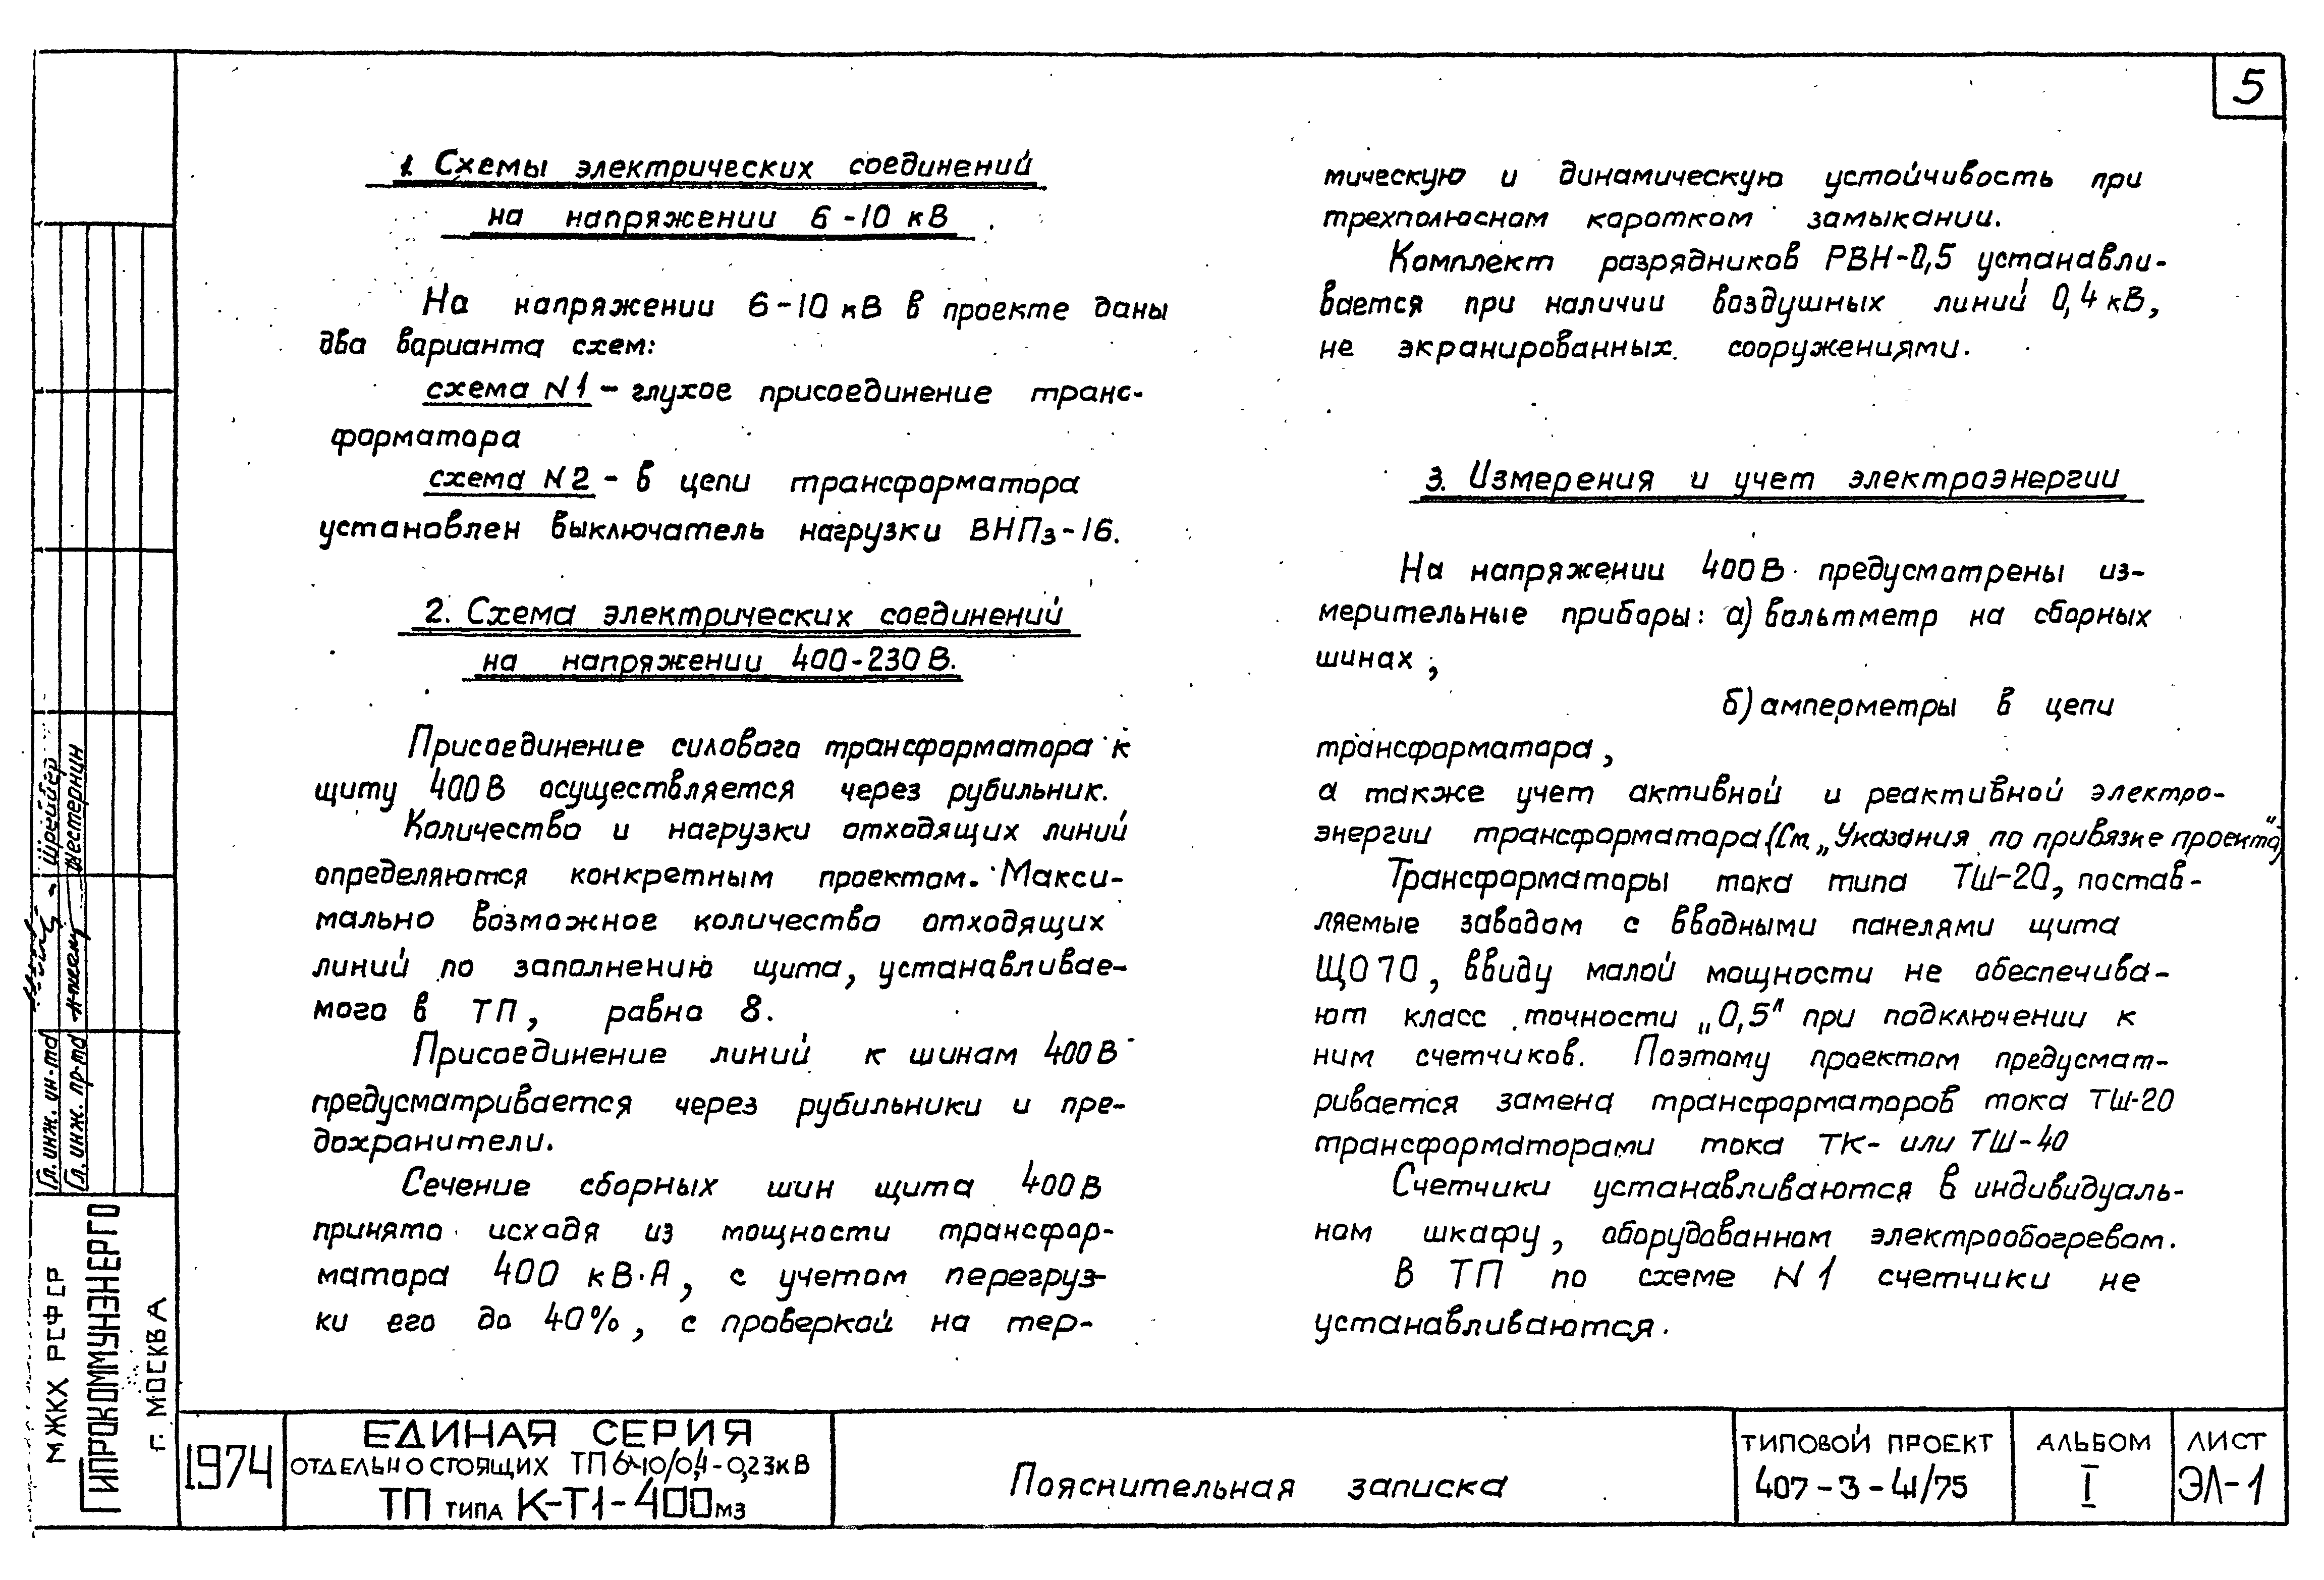 5
1. Схемы электрических соединений
на напряжении 6-10 кВ
На напряжении 6-10 кВ в проекте даны
два варианта схем:
схема N1 - глухое присоединение транс-
форматора
схема N2 - в цепи трансформатора
установлен выключатель нагрузки ВНПз-16.
2. Схема электрических соединений
на напряжении 400-230 В.
Присоединение силового трансформатора к
щиту 400 В осуществляется через рубильник.
Количество и нагрузки отходящих линий
определяются конкретным проектом. Макси-
мально возможное количество отходящих
линий по заполнению щита, устанавливае-
мого в ТП, равно 8.
Присоединение линий к шинам 400 В
предусматривается через рубильники и пре-
дохранители.
Сечение сборных шин щита 400 В
принято исходя из мощности трансфор-
матора 400 кВ·А, с учетом перегруз-
ки его до 40%, с проверкой на тер-
мическую и динамическую устойчивость при
трехполюсном коротком замыкании.
Комплект разрядников РВН-0,5 устанавли-
вается при наличии воздушных линий 0,4 кВ,
не экранированных сооружениями.
3. Измерения и учет электроэнергии
На напряжении 400 В предусмотрены из-
мерительные приборы: а) вольтметр на сборных
шинах,
б) амперметры в цепи
трансформатора,
а также учет активной и реактивной электро-
энергии трансформатора (См. „Указания по привязке проекта")
Трансформаторы тока типа ТШ-20, постав-
ляемые заводом с вводными панелями щита
ЩО70, ввиду малой мощности не обеспечива-
ют класс точности „0,5" при подключении к
ним счетчиков. Поэтому проектом предусмат-
ривается замена трансформаторов тока ТШ-20
трансформаторами тока ТК- или ТШ-40
Счетчики устанавливаются в индивидуаль-
ном шкафу, оборудованном электрообогревом.
В ТП по схеме N1 счетчики не
устанавливаются.
Гл. инж. ин-та Шрейбер
Гл. инж. пр-та Шестернин
МЖКХ РСФСР
ГИПРОКОММУНЭНЕРГО
г. МОСКВА
1974
ЕДИНАЯ СЕРИЯ
ОТДЕЛЬНОСТОЯЩИХ ТП 6-10/0,4-0,23кВ
ТП ТИПА К-Т1-400 мз
Пояснительная записка
ТИПОВОЙ ПРОЕКТ
407-3-41/75
АЛЬБОМ
I
ЛИСТ
ЭЛ-1